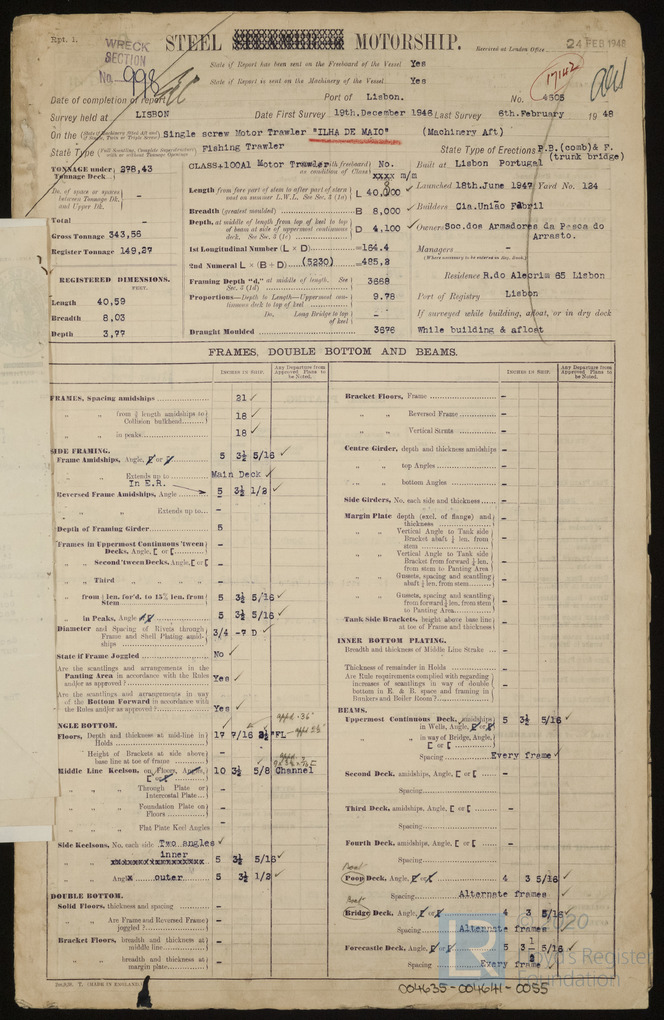 Rpt. 1.
WRECK
SECTION
No. 998
STEEL MOTORSHIP.
Received at London Office
24 FEB 1948
State if Report has been sent on the Freeboard of the Vessel Yes
State if Report is sent on the Machinery of the Vessel Yes
17142
Date of completion of report
Port of Lisbon.
No. 4605
Survey held at LISBON
Date First Survey 19th.December 1946 Last Survey 6th.February 1948
On the Single screw Motor Trawler "ILHA DE MAIO" (Machinery Aft)
State Type Fishing Trawler
State Type of Erections P.B.(comb)& F.
(trunk bridge)
TONNAGE under Tonnage Deck 278,43
CLASS +100A1 Motor Trawler with freeboard as condition of Class No.
xxxx m/m
Built at Lisbon Portugal
Do. of space or spaces between Tonnage Dk. and Upper Dk.
Length from fore part of stem to after part of stern post on summer L.W.L. See Sec. 3 (1a) L 40,000
Launched 18th.June 1947 Yard No. 124
Breadth (greatest moulded) B 8,000
Builders Cia.União Fabril
Total -
Gross Tonnage 343,56
Register Tonnage 149,27
Depth, at middle of length from top of keel to top of beam at side of uppermost continuous deck. See Sec. 3 (1c) D 4,100
Owners Soc.dos Armadores da Pesca do
Arrasto.
1st Longitudinal Number (L x D) =164.4
Managers -
2nd Numeral L x (B + D) (5230) =485,2
REGISTERED DIMENSIONS.
FEET.
Length 40,59
Breadth 8,03
Depth 3,77
Framing Depth "d," at middle of length. See Sec. 3 (1d) 3668
Residence R.do Alecrim 65 Lisbon
Proportions—Depth to Length—Uppermost continuous deck to top of keel 9.78
Port of Registry Lisbon
Do. Long Bridge to top of keel -
If surveyed while building, afloat, or in dry dock
Draught Moulded 3676
While building & afloat
FRAMES, DOUBLE BOTTOM AND BEAMS.
INCHES IN SHIP.
Any Departure from Approved Plans to be Noted.
INCHES IN SHIP.
Any Departure from Approved Plans to be Noted.
FRAMES, Spacing amidships 21
" " from ⅗ length amidships to Collision bulkhead 18
" " in peaks 18
SIDE FRAMING.
Frame Amidships, Angle, 5 3½ 5/16
" " Extends up to Main Deck
In E.R.
Reversed Frame Amidships, Angle 5 3½ 1/2
" " Extends up to -
Depth of Framing Girder 5
Frames in Uppermost Continuous 'tween Decks, Angle, [ or [ -
" Second 'tween Decks, Angle, [ or [ -
" Third " " " -
" from ⅗ len. for'd. to 15% len. from Stem 5 3½ 5/16
" in Peaks, Angle 5 3½ 5/16
Diameter and Spacing of Rivets through Frame and Shell Plating amidships 3/4 -7 D
State if Frame Joggled No
Are the scantlings and arrangements in the Panting Area in accordance with the Rules and/or as approved? Yes
Are the scantlings and arrangements in way of the Bottom Forward in accordance with the Rules and/or as approved? Yes
NGLE BOTTOM.
Floors, Depth and thickness at mid-line in Holds 17 7/16 3½"FL
" Height of Brackets at side above base line at toe of frame -
Middle Line Keelson, on Floors, Angles, 10 3½ 5/8 Channel
" " Through Plate or Intercostal Plate -
" " Foundation Plate on Floors -
" " Flat Plate Keel Angles -
Side Keelsons, No. each side Two angles
" " inner 5 3½ 5/16
Angle outer 5 3½ 1/2
DOUBLE BOTTOM.
Solid Floors, thickness and spacing -
" " Are Frame and Reversed Frame joggled? -
Bracket Floors, breadth and thickness at middle line -
" " breadth and thickness at margin plate -
Bracket Floors, Frame -
" " Reversed Frame -
" " Vertical Struts -
Centre Girder, depth and thickness amidships -
" " top Angles -
" " bottom Angles -
Side Girders, No. each side and thickness -
Margin Plate depth (excl. of flange) and thickness -
" " Vertical Angle to Tank side Bracket abaft ¼ len. from stem -
" " Vertical Angle to Tank side Bracket from forward ¼ len. from stem to Panting Area -
" " Gussets, spacing and scantling abaft ¼ len. from stem -
" " Gussets, spacing and scantling from forward ¼ len. from stem to Panting Area -
Tank Side Brackets, height above base line at toe of Frame and thickness -
INNER BOTTOM PLATING.
Breadth and thickness of Middle Line Strake -
Thickness of remainder in Holds -
Are Rule requirements complied with regarding increases of scantlings in way of double bottom in E. & B. space and framing in Bunkers and Boiler Room? -
BEAMS.
Uppermost Continuous Deck, amidships in Wells, Angle, 5 3½ 5/16
" " in way of Bridge, Angle, [ or [ -
Spacing Every frame
Second Deck, amidships, Angle, [ or [ -
Spacing
Third Deck, amidships, Angle, [ or [ -
Spacing
Fourth Deck, amidships, Angle, [ or [ -
Spacing
Boat
Poop Deck, Angle, 4 3 5/16
Spacing Alternate frames
Boat
Bridge Deck, Angle, 4 3 5/16
Spacing Alternate frames
Forecastle Deck, Angle, 5 3½ 5/16
Spacing Every frame
(MADE IN ENGLAND.)
© 2020
Lloyd's Register
Foundation
004635-004641-0055